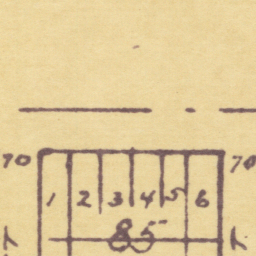 70 70
1 2 3 4 5 6
85